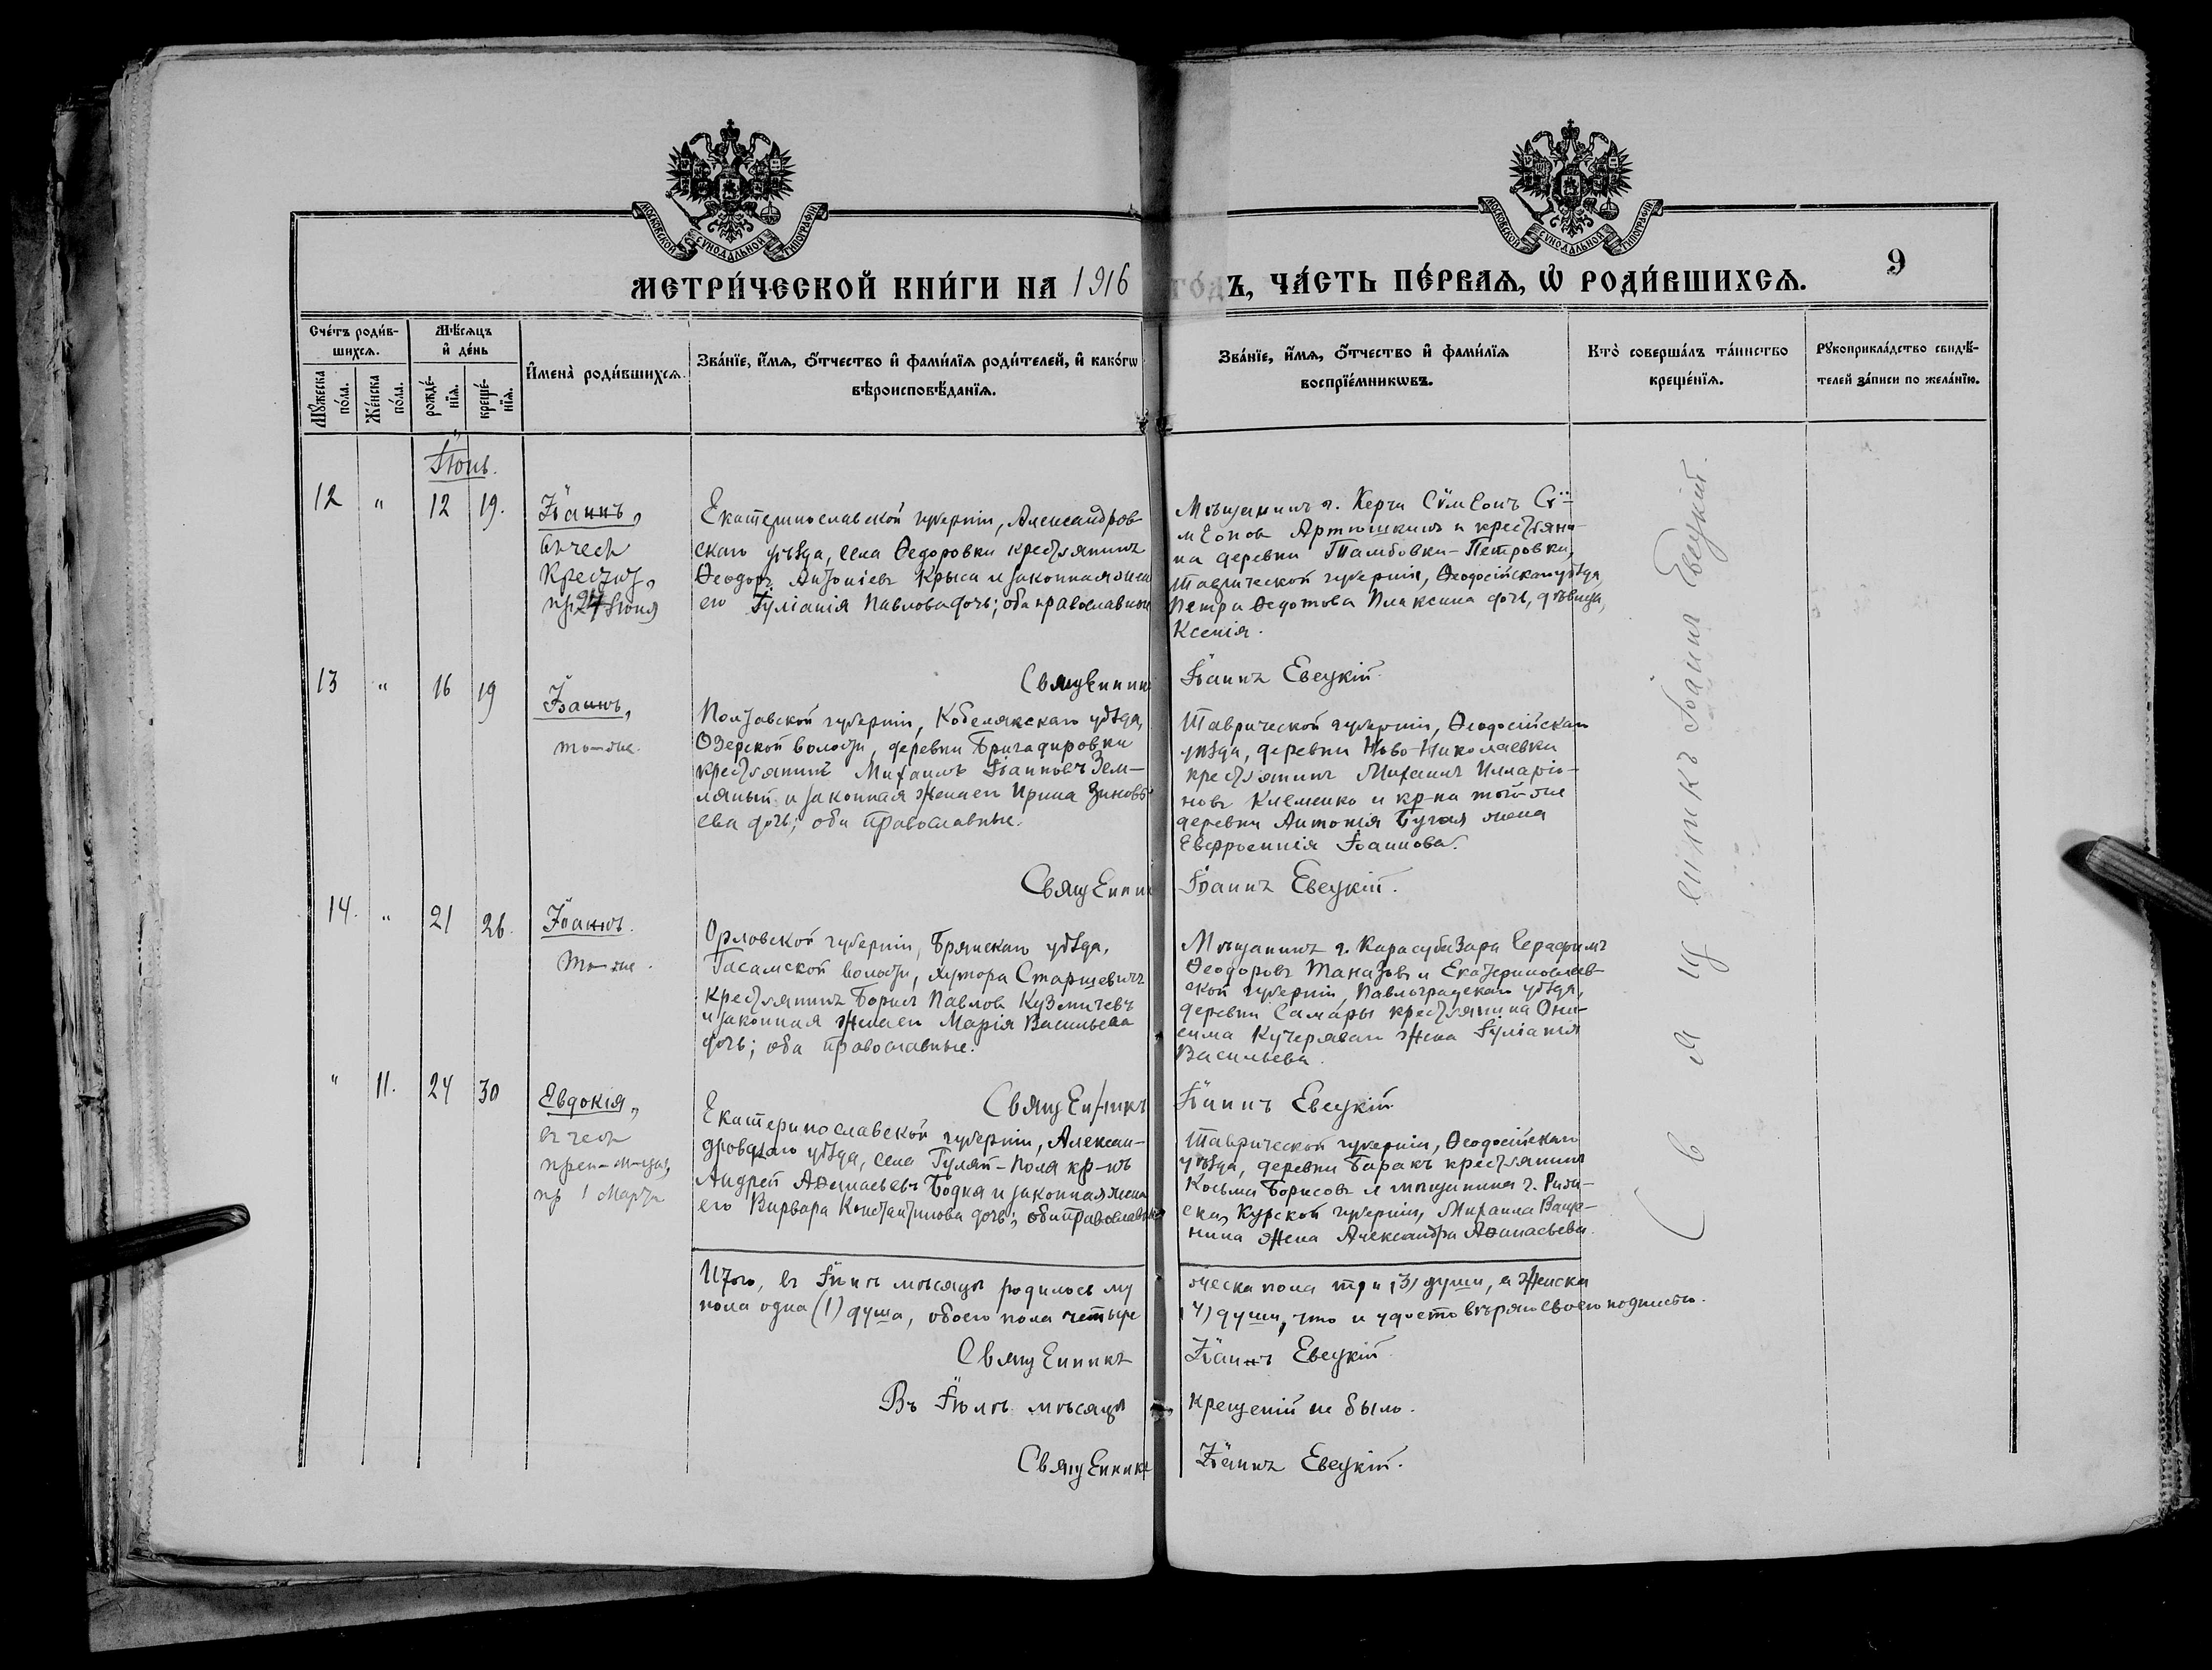 МОСКОВСКОЙ СУНОДАЛЬНОЙ ТИПОГРАФІИ
МОСКОВСКОЙ СУНОДАЛЬНОЙ ТИПОГРАФІИ
МЕТРИ́ЧЕСКОЙ КНИ́ГИ НА 1916 ГО́ДЪ, ЧА́СТЬ ПЕ́РВАѦ, Ѽ РОДИ́ВШИХСѦ.
9
Сче́тъ роди́в-
шихсѧ.
Мѣ́сѧцъ
и҆ де́нь
И҆мена̀ роди́вшихсѧ.
Зва́нїе, и҆́мѧ, ѻ҆́тчество и҆ фами́лїѧ роди́телей, и҆ како́гѡ
вѣроисповѣ́данїѧ.
Зва́нїе, и҆́мѧ, ѻ҆́тчество и҆ фами́лїѧ
воспрїе́мникѡвъ.
Кто̀ соверша́лъ та́инство
креще́нїѧ.
Рꙋкоприкла́дство свидѣ́-
телей за́писи по жела́нїю.
Мꙋ́жеска
по́ла.
Же́нска
по́ла.
рожде́-
нїѧ.
креще́-
нїѧ.
Іюнь.
12 " 12 19.
Іоаннъ,
въ честь
Крестит.,
пр. 24 Іюня
Екатеринославской губерніи, Александров-
скаго уѣзда, села Ѳедоровки крестьянинъ
Ѳеодоръ Антоніевъ Крыса и законная жена
его Іуліанія Павлова дочь; оба православные
Мѣщанинъ г. Керчи Сѵмеонъ Сѵ-
меоновъ Артюшкинъ и крестьяни-
на деревни Тамбовки-Петровки,
Таврической губерніи, Ѳеодосійскаго уѣзда,
Петра Ѳедотова Плаксина дочь, дѣвица,
Ксенія.
Священникъ Іоаннъ Евецкій.
13 " 16 19
Іоаннъ,
то-же.
Полтавской губерніи, Кобелякскаго уѣзда,
Озерской волости, деревни Бригадировки
крестьянинъ Михаилъ Іоанновъ Зем-
ляный и законная жена его Ирина Зиновь-
ева дочь; оба православные.
Таврической губерніи, Ѳеодосійскаго
уѣзда, деревни Ново-Николаевки
крестьянинъ Михаилъ Илларіо-
новъ Клеменко и кр-на той-же
деревни Антонія Бугая жена
Евфросинія Іоаннова.
Священникъ Іоаннъ Евецкій.
14. " 21 26.
Іоаннъ.
То-же.
Орловской губерніи, Брянскаго уѣзда,
волости, хутора
крестьянинъ Борисъ Павловъ Кузмичевъ
и законная жена его Марія Васильева
дочь; оба православные.
Мѣщанинъ г. Карасубазара Серафимъ
Ѳеодоровъ и Екатеринослав-
ской губерніи, Павлоградскаго уѣзда,
деревни Сама́ры крестьянина Они-
сима Кучеряваго жена Іуліанія
Васильева.
Священникъ Іоаннъ Евецкій.
" 11. 24 30
Евдокія,
въ честь
преп-м-цы,
пр 1 Марта
Екатеринославской губерніи, Алексан-
дровскаго уѣзда, села Гуляй-Поля кр-нъ
Андрей Аѳанасьевъ Бодня и законная жена
его Варвара Константинова дочь; оба православные
Таврической губерніи, Ѳеодосійскаго
уѣзда, деревни Баракъ крестьянинъ
Косьма Борисовъ и мѣщанина г.
Курской губерніи, Михаила
жена Александра Аѳанасьева.
Священникъ Іоаннъ Евецкій.
Итого, въ Іюнѣ мѣсяцѣ родилось мужеска пола три (3) души, а женска
пола одна (1) душа, обоего пола четыре (4) души, что и удостовѣряю своею подписью.
Священникъ Іоаннъ Евецкій.
Въ Іюлѣ мѣсяцѣ крещеній не было.
Священникъ Іоаннъ Евецкій.